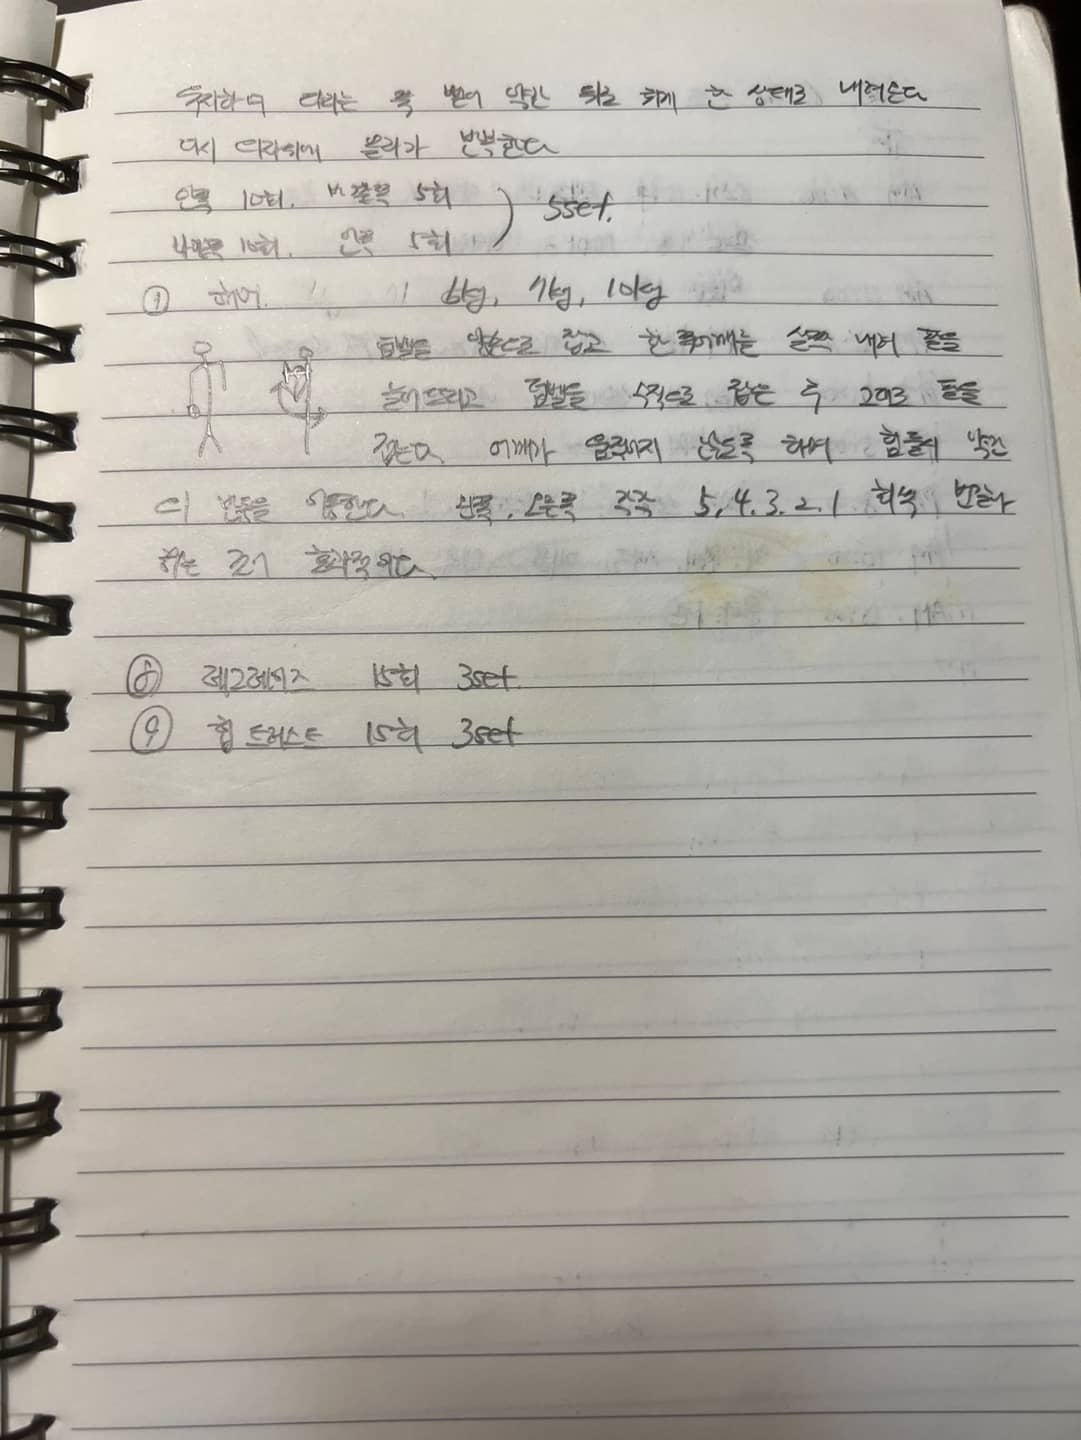 유지하며 다리는 쭉 뻗어 약간 뒤로 하게 한 상태로 내려온다
다시 올라가 반복한다
안쪽 10회. 바깥쪽 5회
바깥쪽 10회. 안쪽 5회 5set.
6kg, 7kg, 10kg
덤벨을 잡고 한쪽어깨는 살짝 내려 팔을
늘어뜨리고 덤벨을 수직으로 잡은 후 그대로 팔을
접는다. 어깨가 움직이지 않도록 하며 힘들시 약간
의 반동을 이용한다. 왼쪽, 오른쪽 각각 5, 4, 3, 2, 1 회씩 반복
하는 것이 효과적이다.
⑧ 레그레이즈 15회 3set.
⑨ 힙 드러스트 15회 3set